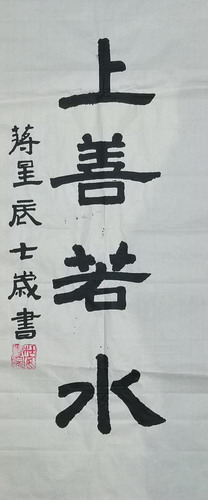 上善若水
蒋星辰七岁書